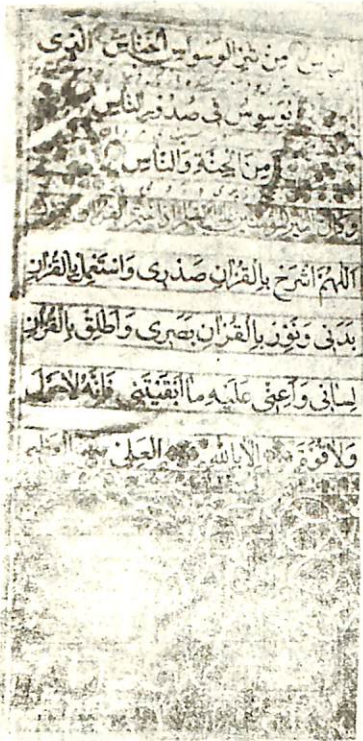 الناس مِنْ شَرِّ الْوَسْوَاسِ الْخَنَّاسِ الَّذِى
يُوَسْوِسُ فِى صُدُورِ النَّاسِ
مِنَ الْجِنَّةِ وَالنَّاسِ
وكان امير المؤمنين
اَللّٰهُمَّ اشْرَحْ بِالْقُرْاٰنِ صَدْرِى وَاسْتَعْمِلْ بِالْقُرْاٰنِ
بَدَنِى وَنَوِّرْ بِالْقُرْاٰنِ بَصَرِى وَاَطْلِقْ بِالْقُرْاٰنِ
لِسَانِى وَاَعِنِّى عَلَيْهِ مَا اَبْقَيْتَنِى فَاِنَّهُ لَاحَوْلَ
وَلَا قُوَّةَ اِلَّا بِاللّٰهِ الْعَلِىِّ